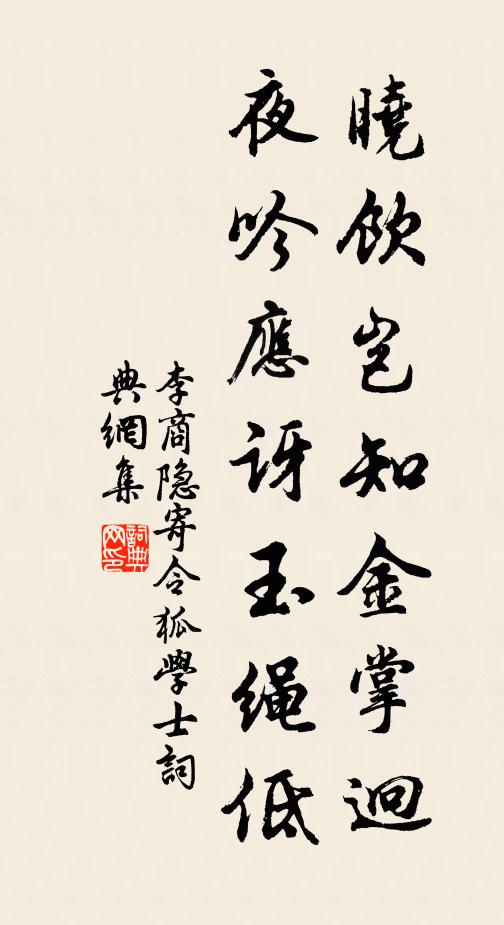 曉飲豈知金掌迥
夜吟應訝玉绳低
李商隐寄令狐學士詞
典網集
詞典
网印